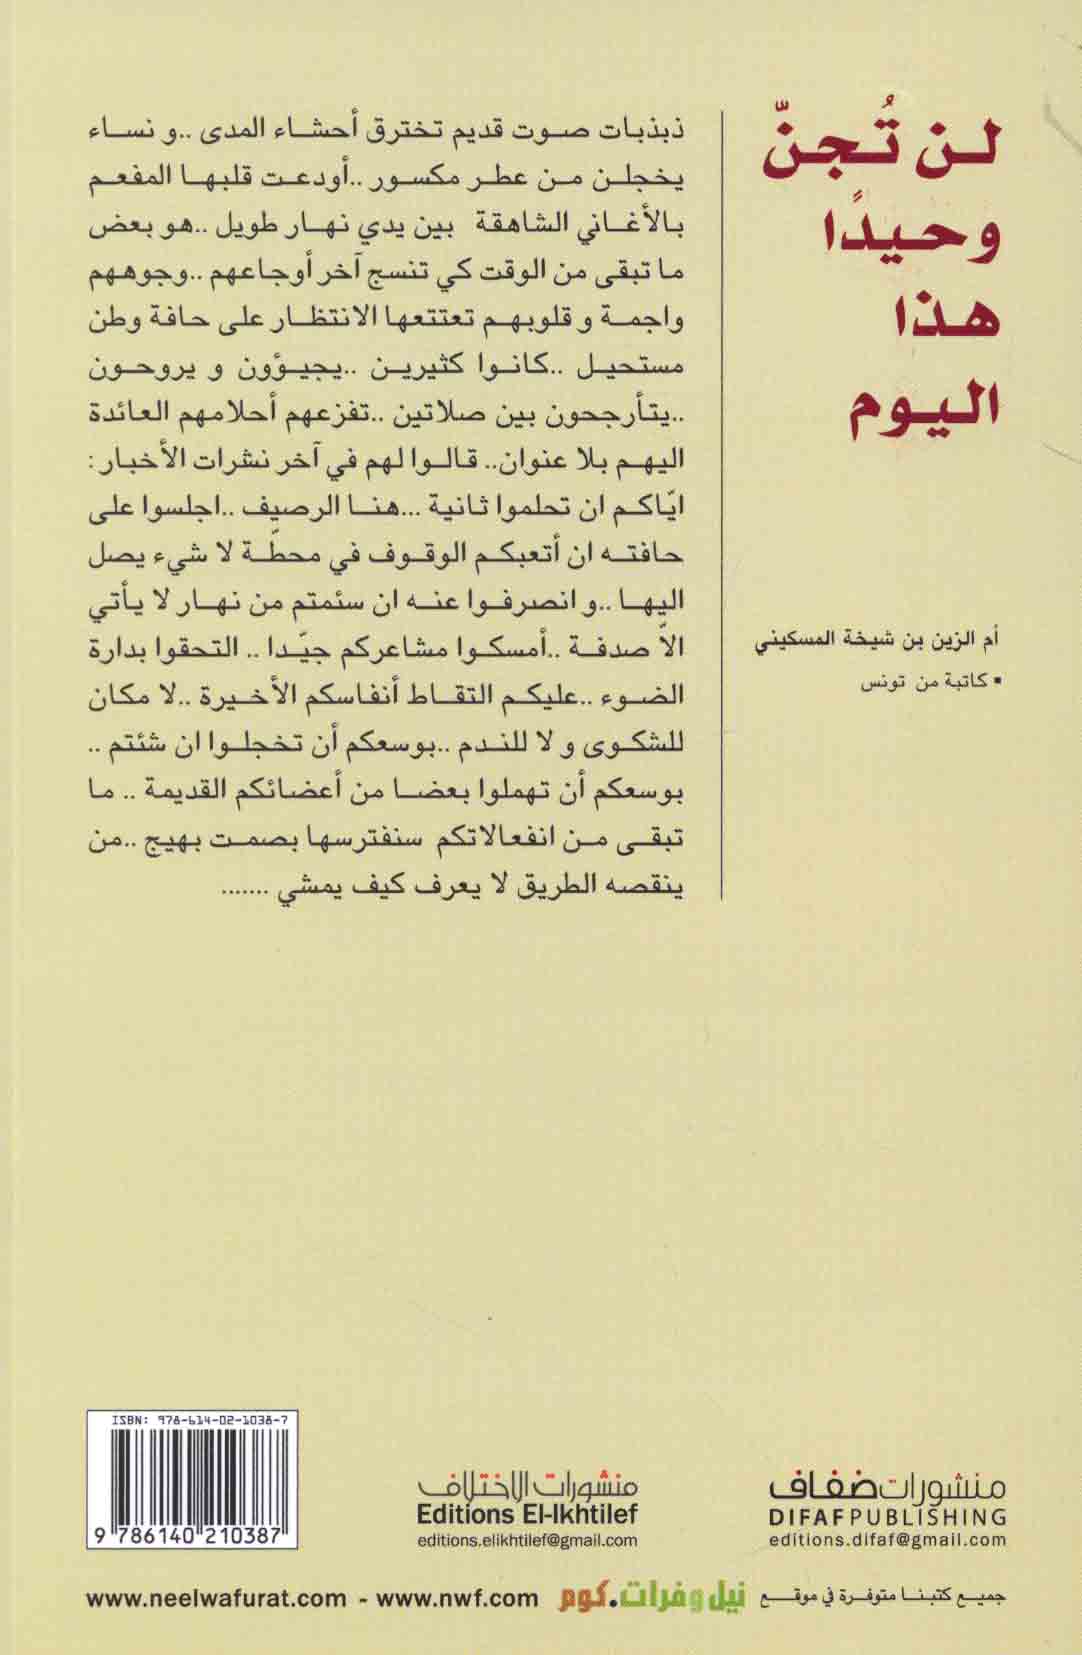 لن تُجنّ
وحيدًا
هذا
اليوم
أم الزين بن شيخة المسكيني
▪ كاتبة من تونس
ذبذبات صوت قديم تخترق أحشاء المدى ..و نساء
يخجلن من عطر مكسور ..أودعت قلبها المفعم
بالأغاني الشاهقة بين يدي نهار طويل ..هو بعض
ما تبقى من الوقت كي تنسج آخر أوجاعهم ..وجوههم
واجمة و قلوبهم تعتتعها الانتظار على حافة وطن
مستحيل ..كانوا كثيرين ..يجيؤون و يروحون
..يتأرجحون بين صلاتين ..تفزعهم أحلامهم العائدة
اليهم بلا عنوان.. قالوا لهم في آخر نشرات الأخبار:
ايّاكم ان تحلموا ثانية ...هنا الرصيف ..اجلسوا على
حافته ان أتعبكم الوقوف في محطّة لا شيء يصل
اليها ..و انصرفوا عنه ان سئمتم من نهار لا يأتي
الاّ صدفة ..أمسكوا مشاعركم جيّدا .. التحقوا بدارة
الضوء ..عليكم التقاط أنفاسكم الأخيرة ..لا مكان
للشكوى و لا للندم ..بوسعكم أن تخجلوا ان شئتم ..
بوسعكم أن تهملوا بعضا من أعضائكم القديمة .. ما
تبقى من انفعالاتكم سنفترسها بصمت بهيج ..من
ينقصه الطريق لا يعرف كيف يمشي .......
منشورات ضفاف
DIFAF PUBLISHING
editions.difaf@gmail.com
منشورات الاختلاف
Editions El-Ikhtilef
editions.elikhtilef@gmail.com
ISBN: 978-614-02-1038-7
9 786140 210387
جميع كتبنا متوفرة في موقع نيل وفرات.كوم www.neelwafurat.com - www.nwf.com